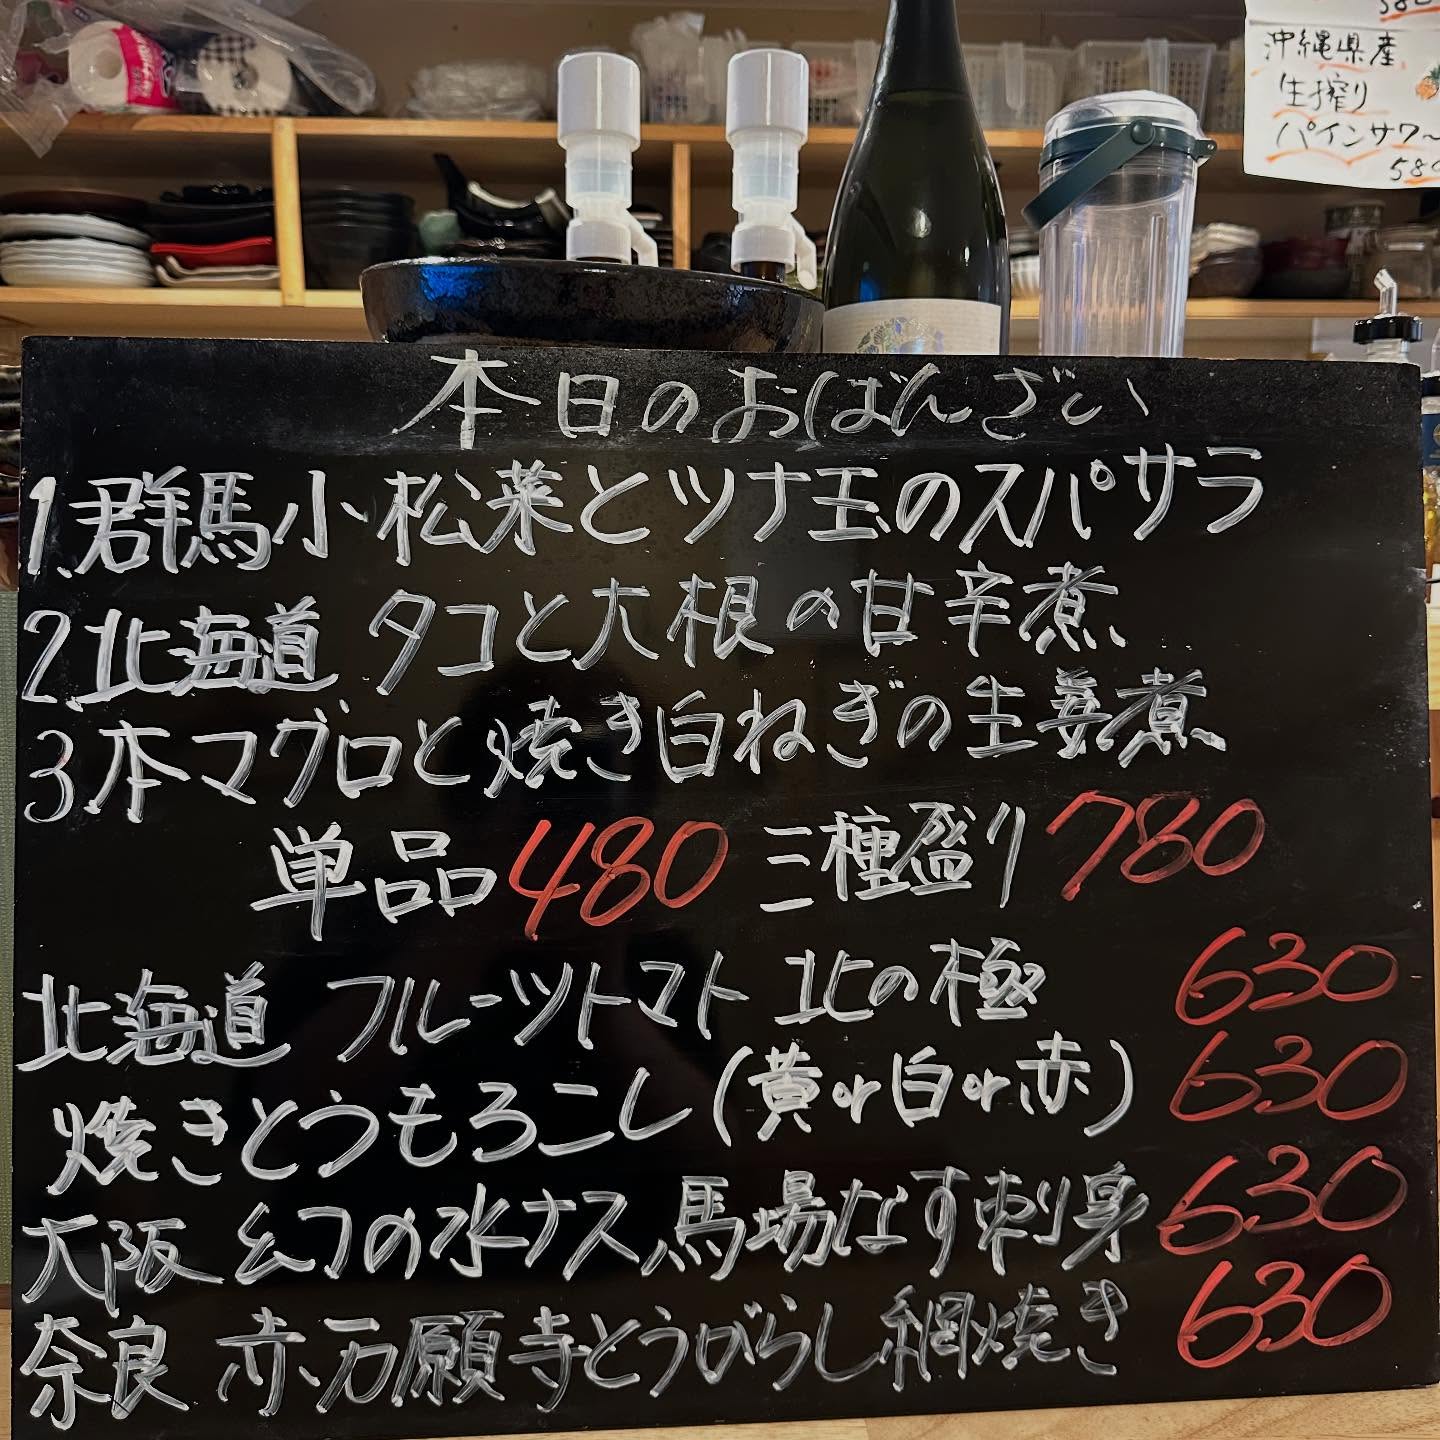 沖縄県産
生搾り
パインサワー
580
本日のおばんざい
1.群馬小松菜とツナ玉のスパサラ
2.北海道 タコと大根の甘辛煮
3.本マグロと焼き白ねぎの生姜煮
単品480 三種盛り780
北海道 フルーツトマト 北の極 630
焼きとうもろこし(黄or白or赤) 630
大阪 幻の水ナス、馬場なす刺身 630
奈良 赤万願寺とうがらし網焼き 630